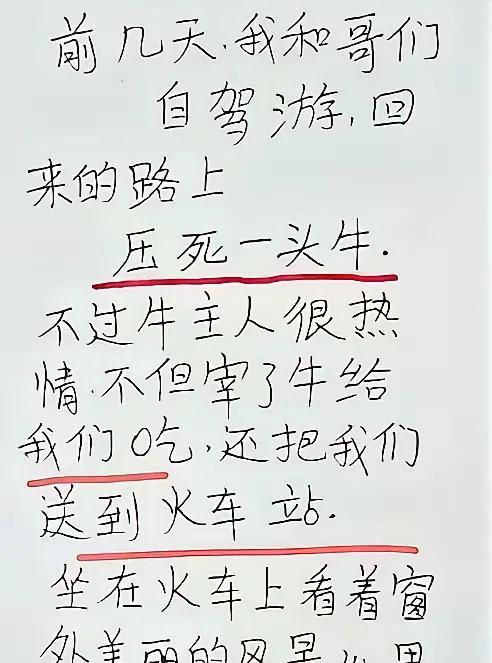 前几天.我和哥们
自驾游,回
来的路上
压死一头牛.
不过牛主人很热
情.不但宰了牛给
我们吃,还把我们
送到火车站.
坐在火车上看着窗
外美丽的风景